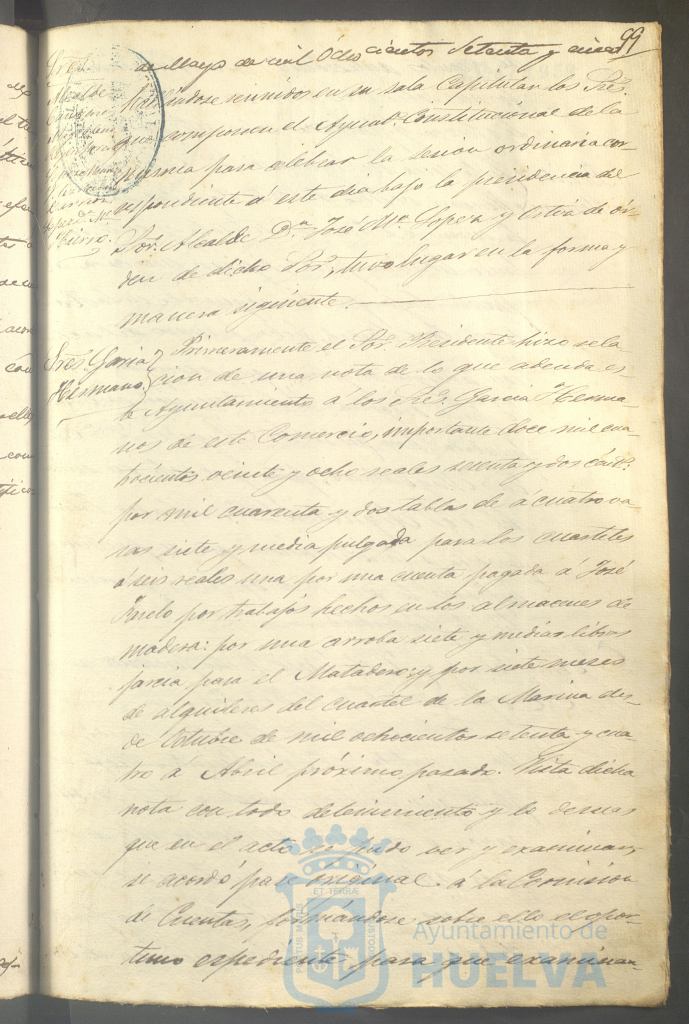 99
de Mayo de mil Ochocientos Setenta y cinco
hallandose reunidos en su sala Capitular los Sres.
que componen el Ayunt.º Constitucional de la
misma para celebrar la sesion ordinaria cor-
respondiente á este dia bajo la presidencia del
Sor. Alcalde Dn. José Mª. Lopez y de ór-
den de dicho Sor, tuvo lugar en la forma y
manera siguiente.
Sres. Garcia
Hermanos
Primeramente el Sor. Presidente hizo rela-
cion de una nota de lo que adeuda es-
te Ayuntamiento á los Sres. Garcia Herma-
nos de este Comercio, importante doce mil cua-
trocientos veinte y ocho reales setenta y dos cént.
por mil cuarenta y dos tablas de á cuatro va-
ras siete y media pulgada para los cuarteles
á seis reales una por una cuenta pagada á José
por trabajos hechos en los almacenes de
madera: por una arroba siete y medias libras
jarcia para el Matadero; y por siete meses
de alquileres del cuartel de la Marina des-
de Octubre de mil ochocientos setenta y cua-
tro á Abril próximo pasado. Vista dicha
nota con todo detenimiento y lo demas
que en el acto se pudo ver y examinar,
se acordó pase original á la Comision
de Cuentas, formándose sobre ello el opor-
tuno espediente para que examinan-
Ayuntamiento de
HUELVA